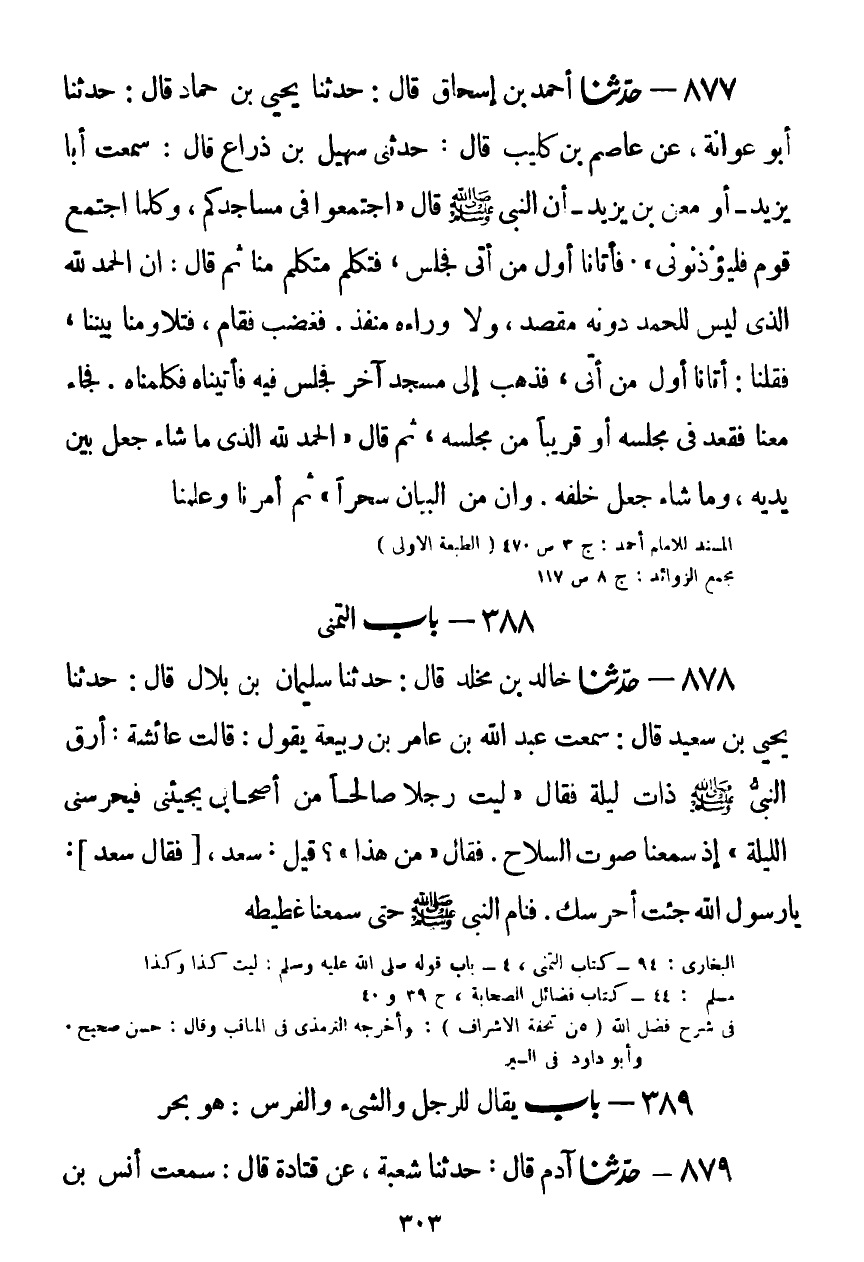 ٨٧٧ – حدّثنا أحمد بن إسحاق قال : حدثنا يحيى بن حماد قال : حدثنا
أبو عوانة ، عن عاصم بن كليب قال : حدثنى سهيل بن ذراع قال : سمعت أبا
يزيد ـ أو معن بن يزيد ـ أن النبى ﷺ قال « اجتمعوا فى مساجدكم ، وكلما اجتمع
قوم فليؤذنونى » . فأتانا أول من أتى فجلس ، فتكلم متكلم منا ثم قال : ان الحمد لله
الذى ليس للحمد دونه مقصد ، ولا وراءه منفذ . فغضب فقام ، فتلاومنا بيننا ،
فقلنا : أتانا أول من أتى ، فذهب إلى مسجد آخر فجلس فيه فأتيناه فكلمناه . فجاء
معنا فقعد فى مجلسه أو قريباً من مجلسه ، ثم قال « الحمد لله الذى ما شاء جعل بين
يديه ، وما شاء جعل خلفه . وان من البيان سحراً » ثم أمرنا وعلمنا
المسند للامام أحمد : ج ٣ س ٤٧٠ ( الطبعة الاولى )
مجمع الزوائد : ج ٨ س ١١٧
٣٨٨ – باب التمنى
٨٧٨ – حدّثنا خالد بن مخلد قال : حدثنا سليمان بن بلال قال : حدثنا
يحيى بن سعيد قال : سمعت عبد الله بن عامر بن ربيعة يقول : قالت عائشة : أرق
النبىُّ ﷺ ذات ليلة فقال « ليت رجلا صالحاً من أصحابى يجيئنى فيحرسنى
الليلة » إذ سمعنا صوت السلاح . فقال « من هذا » ؟ قيل : سعد ، [ فقال سعد ] :
يارسول الله جئت أحرسك . فنام النبى ﷺ حتى سمعنا غطيطه
البخارى : ٩٤ ـ كتاب التمنى ، ٤ ـ باب قوله صلى الله عليه وسلم : ليت كذا وكذا
مسلم : ٤٤ ـ كتاب فضائل الصحابة ، ح ٣٩ و ٤٠
فى شرح فضل الله ( من تحفة الاشراف ) : وأخرجه الترمذى فى المناقب وقال : حسن صحيح .
وأبو داود فى السير
٣٨٩ – باب يقال للرجل والشىء والفرس : هو بحر
٨٧٩ – حدّثنا آدم قال : حدثنا شعبة ، عن قتادة قال : سمعت أنس بن
٣٠٣